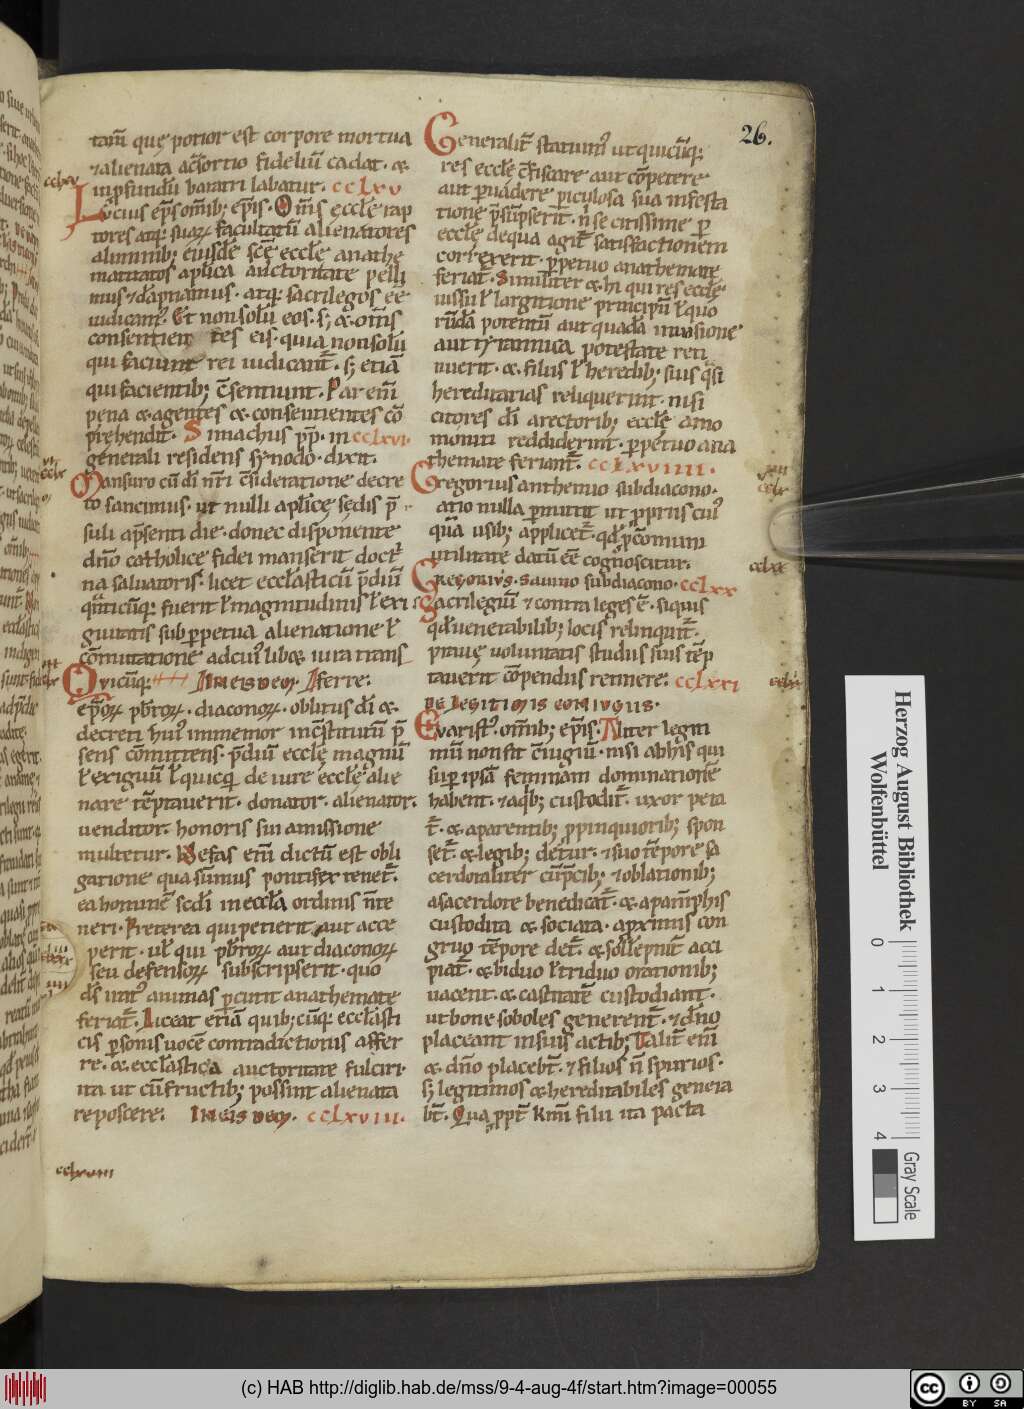 26.
tam̄ quę potior est corpore mortua
⁊ alienata a c̄sortio fidelium̄ cadat. &
in ꝓfundū baratri labatur. cclxv
Lucius ep̄s om̄ib; ep̄is. Om̄s ęccl̄e rap
tores atq; suaꝝ facultatū alienatores
a liminib; eiusdē scē eccl̄e anathe
matizatos ap̄lica auctoritate pelli
mus ⁊ dāpnamus. atq; sacrilegos eē
iudicam᷒. Et non solū eos. s; & om̄s
consentientes eis. quia non solū
qui faciunt rei iudicant᷑. s; etiā
qui facientib; c̄sentiunt. Par eni᷑
pena & agentes & consentientes cō
prehendit. Simachus pp̄. in cclxvi.
generali residens synodo. dixit.
Mansuro cū dī nr̄i c̄sideratione decre
to sancimus. ut nulli apl̄icę sedis p̄
suli a p̄senti die. donec disponente
dn̄o catholice fidei manserit doct᷑
na saluatoris. licet eccl̄asticū p̄diū
qn̄ticūq; fuerit ł magnitudinis ł exi
guitatis sub ꝑpetua alienatione ł
cōmutatione ad cui᷒ libet iura trans
Qvicūq; In eisdem. ferre:
ep̄oꝝ pbr̄oꝝ. diaconoꝝ. oblitus dī &
decreti hui᷒ immemor in c̄stitutū p̄
sens cōmittens. p̄diū ecclę magnū
ł exiguū ł quicq̄ de iure eccl̄e alie
nare tēptauerit. donator. alienator.
uenditor. honoris sui amissione
multetur. Nefas eni᷑ dictū est obli
gatione qua sūmus pontifex tenet᷑.
ea hominē scd̄i in eccl̄a ordinis n̄te
neri. Preterea qui petierit aut acce
perit. uel qui pbr̄oꝝ aut diaconoꝝ
seu defensoꝝ subscripserit. quo
d̄s irat᷒ animas ꝑcutit anathemate
feriat᷑. Liceat etiā quib; cūq; eccl̄asti
cis ꝑsonis uocē contradictionis affer
re. & eccl̄astica auctoritate fulciri
ita ut cū fructib; possint alienata
reposcere: In eisdem. cclxviii.
Generalit᷑ statuim᷒ ut quicūq;
res eccl̄e c̄fiscare aut cōpetere
aut ꝑuadere periculosa sua infesta
tione p̄sūpserit. n̄ se citissime ꝑ
eccl̄e de qua agit᷑ satisfactionem
correxerit. ꝑpetuo anathemate
feriat᷑. Similiter & hi qui res eccl̄e
iussu ł largitione principū ł quo
rūdā potentū aut quadā inuasione
aut tyrannica potestate reti
nuerit. & filiis ł heredib; suis q̄si
hereditarias reliquerint. nisi
citores dī a rectorib; eccl̄e amo
moniti reddiderint. ꝑpetuo ana
themate feriant᷑. cclxviiii.
Gregorius anthemio subdiacono.
atio nulla ꝑmittit ut ꝓpriis cui᷒
quā usib; applicet᷑. qd̄ p̄ comuni
utilitate datū eē cognoscitur.
Gregorius. sauino subdiacono. cclxx
Sacrilegiū ⁊ contra leges ē. si quis
qd̄ uenerabilib; locis relinquit᷑.
prauę uoluntatis studiis suis tēp
tauerit cōpendiis retinere: cclxxi
De legitimis coniugiis.
Evarist᷒. om̄ib; ep̄is. Aliter legiti
mū non sit c̄iugiū. nisi ab his qui
suꝑ ipsā feminam dominationē
habent. ⁊ a q̄b; custodit᷑. uxor peta
t᷑. & a parentib; ꝓpinquiorib; spon
set᷑ & legib; detur. ⁊ suo tēpore sa
cerdotaliter cū p̄cib; ⁊ oblationib;
a sacerdote benedicat᷑. & a paran̄phis
custodita & sociata. a ꝓximis con
gruo tēpore det᷑. & sollēpnit᷑ acci
piat᷑. & biduo ł triduo orationib;
uacent. & castitatē custodiant.
ut bone soboles generent᷑. ⁊ dn̄o
placeant in suis actib; Talit᷑ eni᷑
& dn̄o placebt᷑. ⁊ filios n̄ spurios.
s; legitimos & hereditabiles genera
bt᷑. Qua ꝓpt᷑ kmi᷑ filii ita pacta
cclxviii
cclxx
Herzog August Bibliothek
Wolfenbüttel
0 1 2 3 4
Gray Scale
(c) HAB http://diglib.hab.de/mss/9-4-aug-4f/start.htm?image=00055
cc BY SA